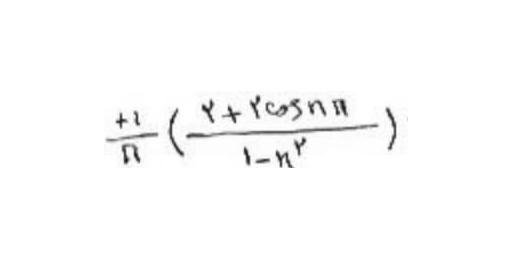 +1/π (۲+۲cosnπ / ۱-n^۲)